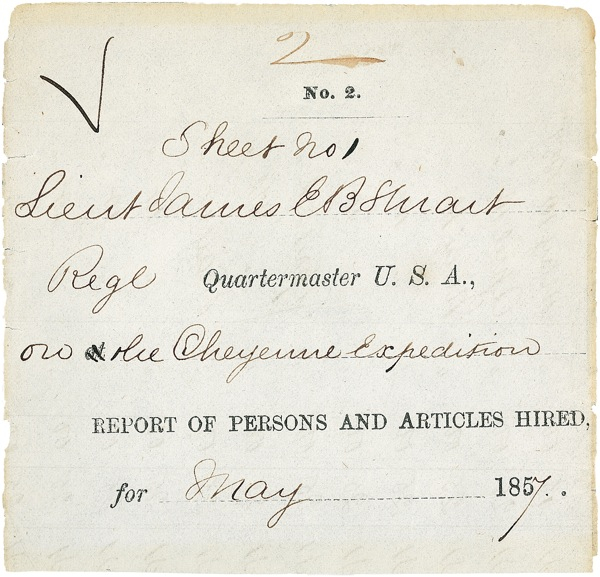 2
No. 2.
Sheet No 1
Lieut James E B Stuart
Regl Quartermaster U. S. A.,
on the Cheyenne Expedition
REPORT OF PERSONS AND ARTICLES HIRED,
for May 1857.